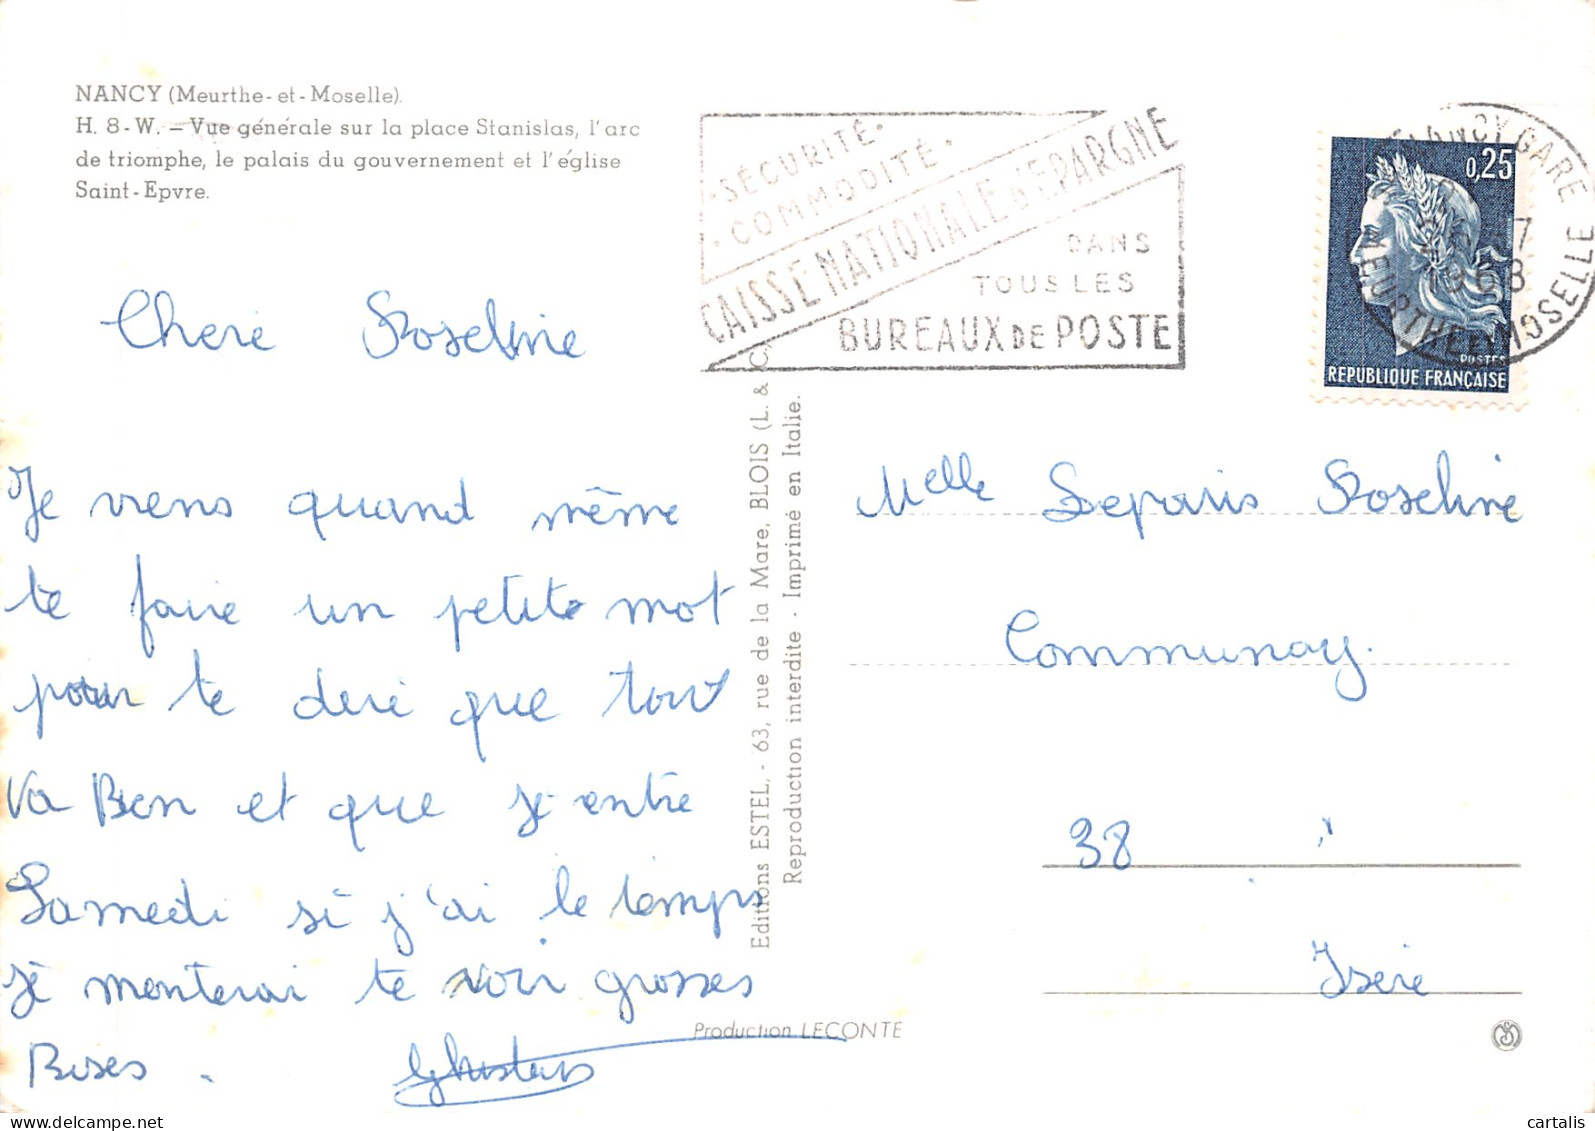 NANCY (Meurthe-et-Moselle).
H. 8-W. — Vue générale sur la place Stanislas, l'arc
de triomphe, le palais du gouvernement et l'église
Saint-Epvre.
SÉCURITÉ.
COMMODITÉ.
CAISSE NATIONALE d'ÉPARGNE
DANS
TOUS LES
BUREAUX DE POSTE
NANCY GARE
1968
MEURTHE ET MOSELLE
0,25
POSTES
REPUBLIQUE FRANÇAISE
Chere Roseline
Je viens quand même
te faire un petite mot
pour te dire que tout
va Bien et que je entre
Samedi si j'ai le temps
je monterai te voir grosses
Bises.
Editions ESTEL, - 63, rue de la Mare, BLOIS (L. & C.
Reproduction interdite - Imprimé en Italie.
Melle Deparis Roseline
Communay.
38
Isère
Production LECONTE
delcampe.net
cartalis